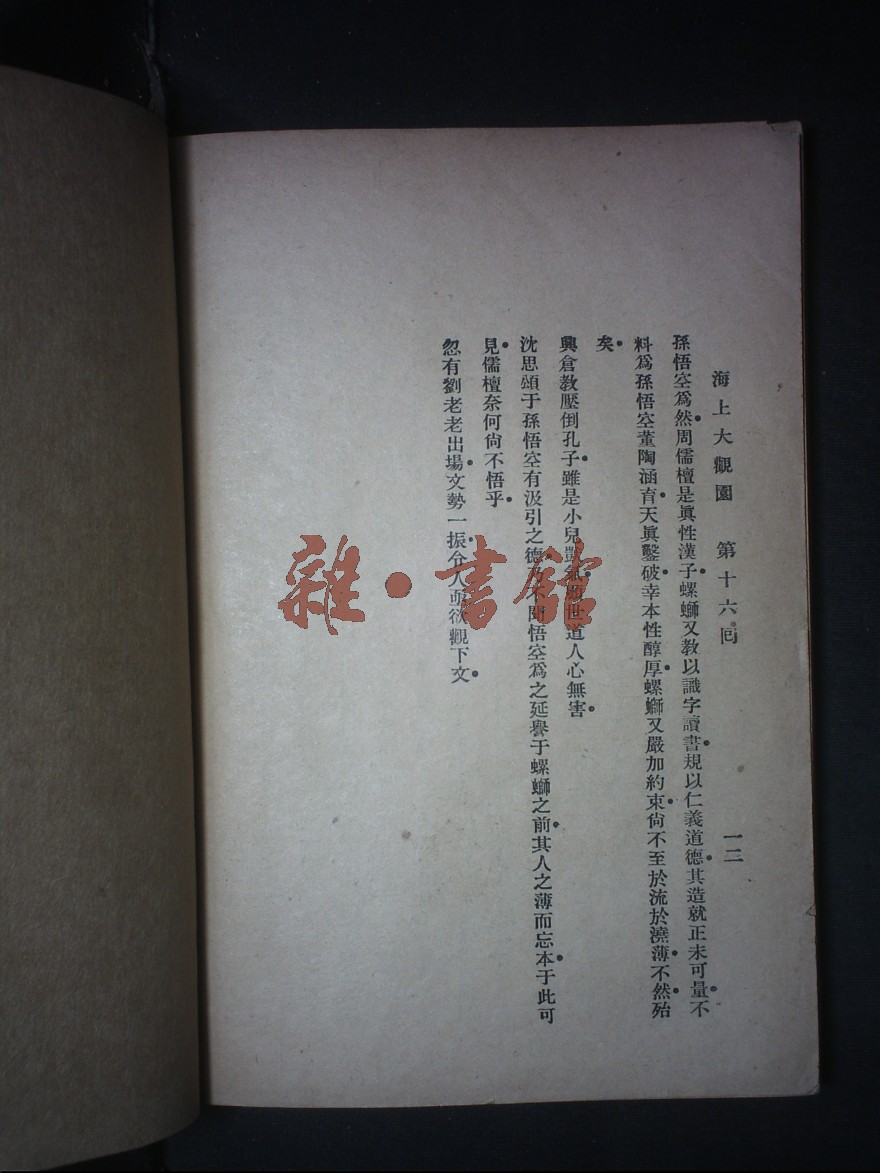 海上大觀園　第十六回　一二
孫悟空爲然●周儒檀是眞性漢子●螺螄又教以識字讀書●規以仁義道德●其造就正未可量●不
料爲孫悟空董陶涵育●天眞鑿破●幸本性醇厚●螺螄又嚴加約束●尙不至於流於澆薄●不然●殆
矣●
興倉教壓倒孔子●雖是小兒世道人心無害●
沈思頌于孫悟空有汲引之德●不聞悟空爲之延譽于螺螄之前●其人之薄而忘本●于此可
見●儒檀奈何尙不悟乎●
忽有劉老老出場●文勢一振●令人亟欲觀下文●
雜·書館